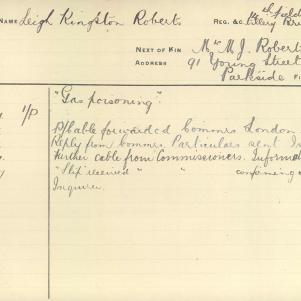 NAME Leigh Kingston Roberts REG. &c. Field
Artillery Bri
NEXT OF KIN Mr M. J. Robert
ADDRESS 91 Young Street
Parkside
1/P "Gas poisoning".
cable forwarded Commrs London
Reply from Commrs. Particulars sent
Further cable from Commissioners. Informed
"Slip received" " " confirming
Inquirer.